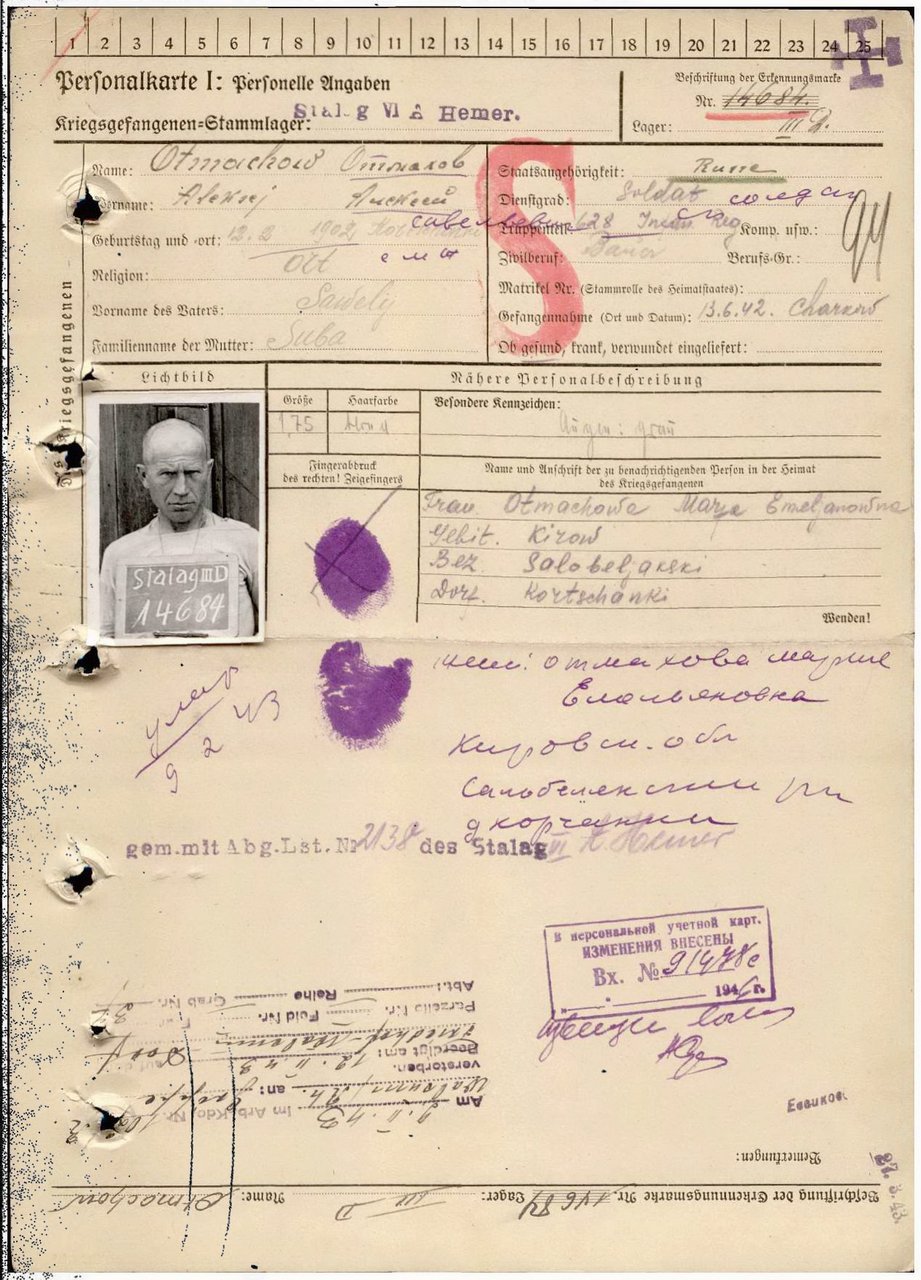 1 2 3 4 5 6 7 8 9 10 11 12 13 14 15 16 17 18 19 20 21 22 23 24 25
Personalkarte I: Personelle Angaben
Kriegsgefangenen-Stammlager: Stalag VI A Hemer.
Beschriftung der Erkennungsmarke
Nr. 14684.
Lager: III D.
Des Kriegsgefangenen
Name: Otmachow Отмахов
Vorname: Aleksej Алексей
Савельевич
Geburtstag und -ort: 12. 2 1902,
Religion: ort
Vorname des Vaters: Sawelij
Familienname der Mutter: Suba
Staatsangehörigkeit: Russe
Dienstgrad: Soldat солдат
Truppenteil: 628 Inftr. Reg Komp. usw.:
Zivilberuf: Bauer Berufs-Gr.:
Matrikel Nr. (Stammrolle des Heimatstaates):
Gefangennahme (Ort und Datum): 13.6.42. Charkow
Ob gesund, krank, verwundet eingeliefert:
S
Lichtbild
Nähere Personalbeschreibung
Größe
1,75
Haarfarbe
blond
Besondere Kennzeichen:
Augen: grau
Fingerabdruck
des rechten! Zeigefingers
Name und Anschrift der zu benachrichtigenden Person in der Heimat
des Kriegsgefangenen
Frau Otmachowa Marja Emeljanowna
Gebit. Kirow
Bez Salobeljakski
Dorf. Kortschanki
Wenden!
Stalag III D
14684
умер
9 2 43
жена: отмахова мария
Емельяновка
Кировск. обл
д корчанки
gem. mit Abg. Lst. Nr 2138 des Stalag VI A Hemer
В персональной учетной карт.
ИЗМЕНЕНИЯ ВНЕСЕНЫ
Вх. №
194 г.
Abt.: Reihe Grab Nr.
Parzelle Nr. Feld Nr.
Beerdigt am: 12. II 43
verstorben.
Am 9. II. 43 Im Arb. Kdo. Nr.
an:
27. 3. 43
Bemerkungen:
Name: Otmachow
Lager: III D
Beschriftung der Erkennungsmarke Nr. 14684